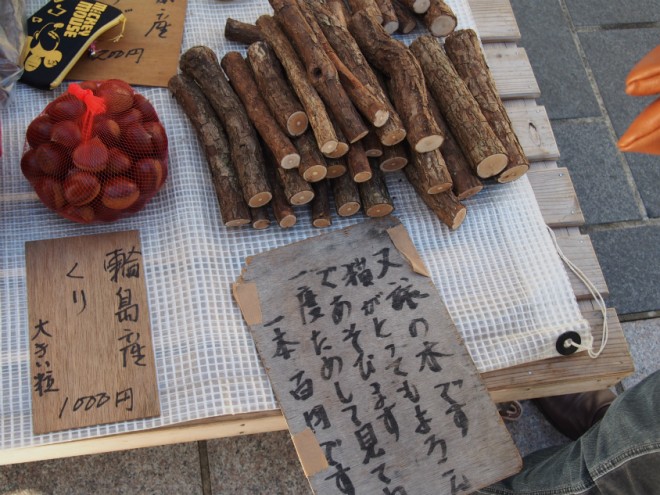 MICKEY
MOUSE
輪島産
くり
大きい粒
1000円
又旅の木です
猫がとってもよろこん
であそびます
一度ためして見てね
一本 百円です